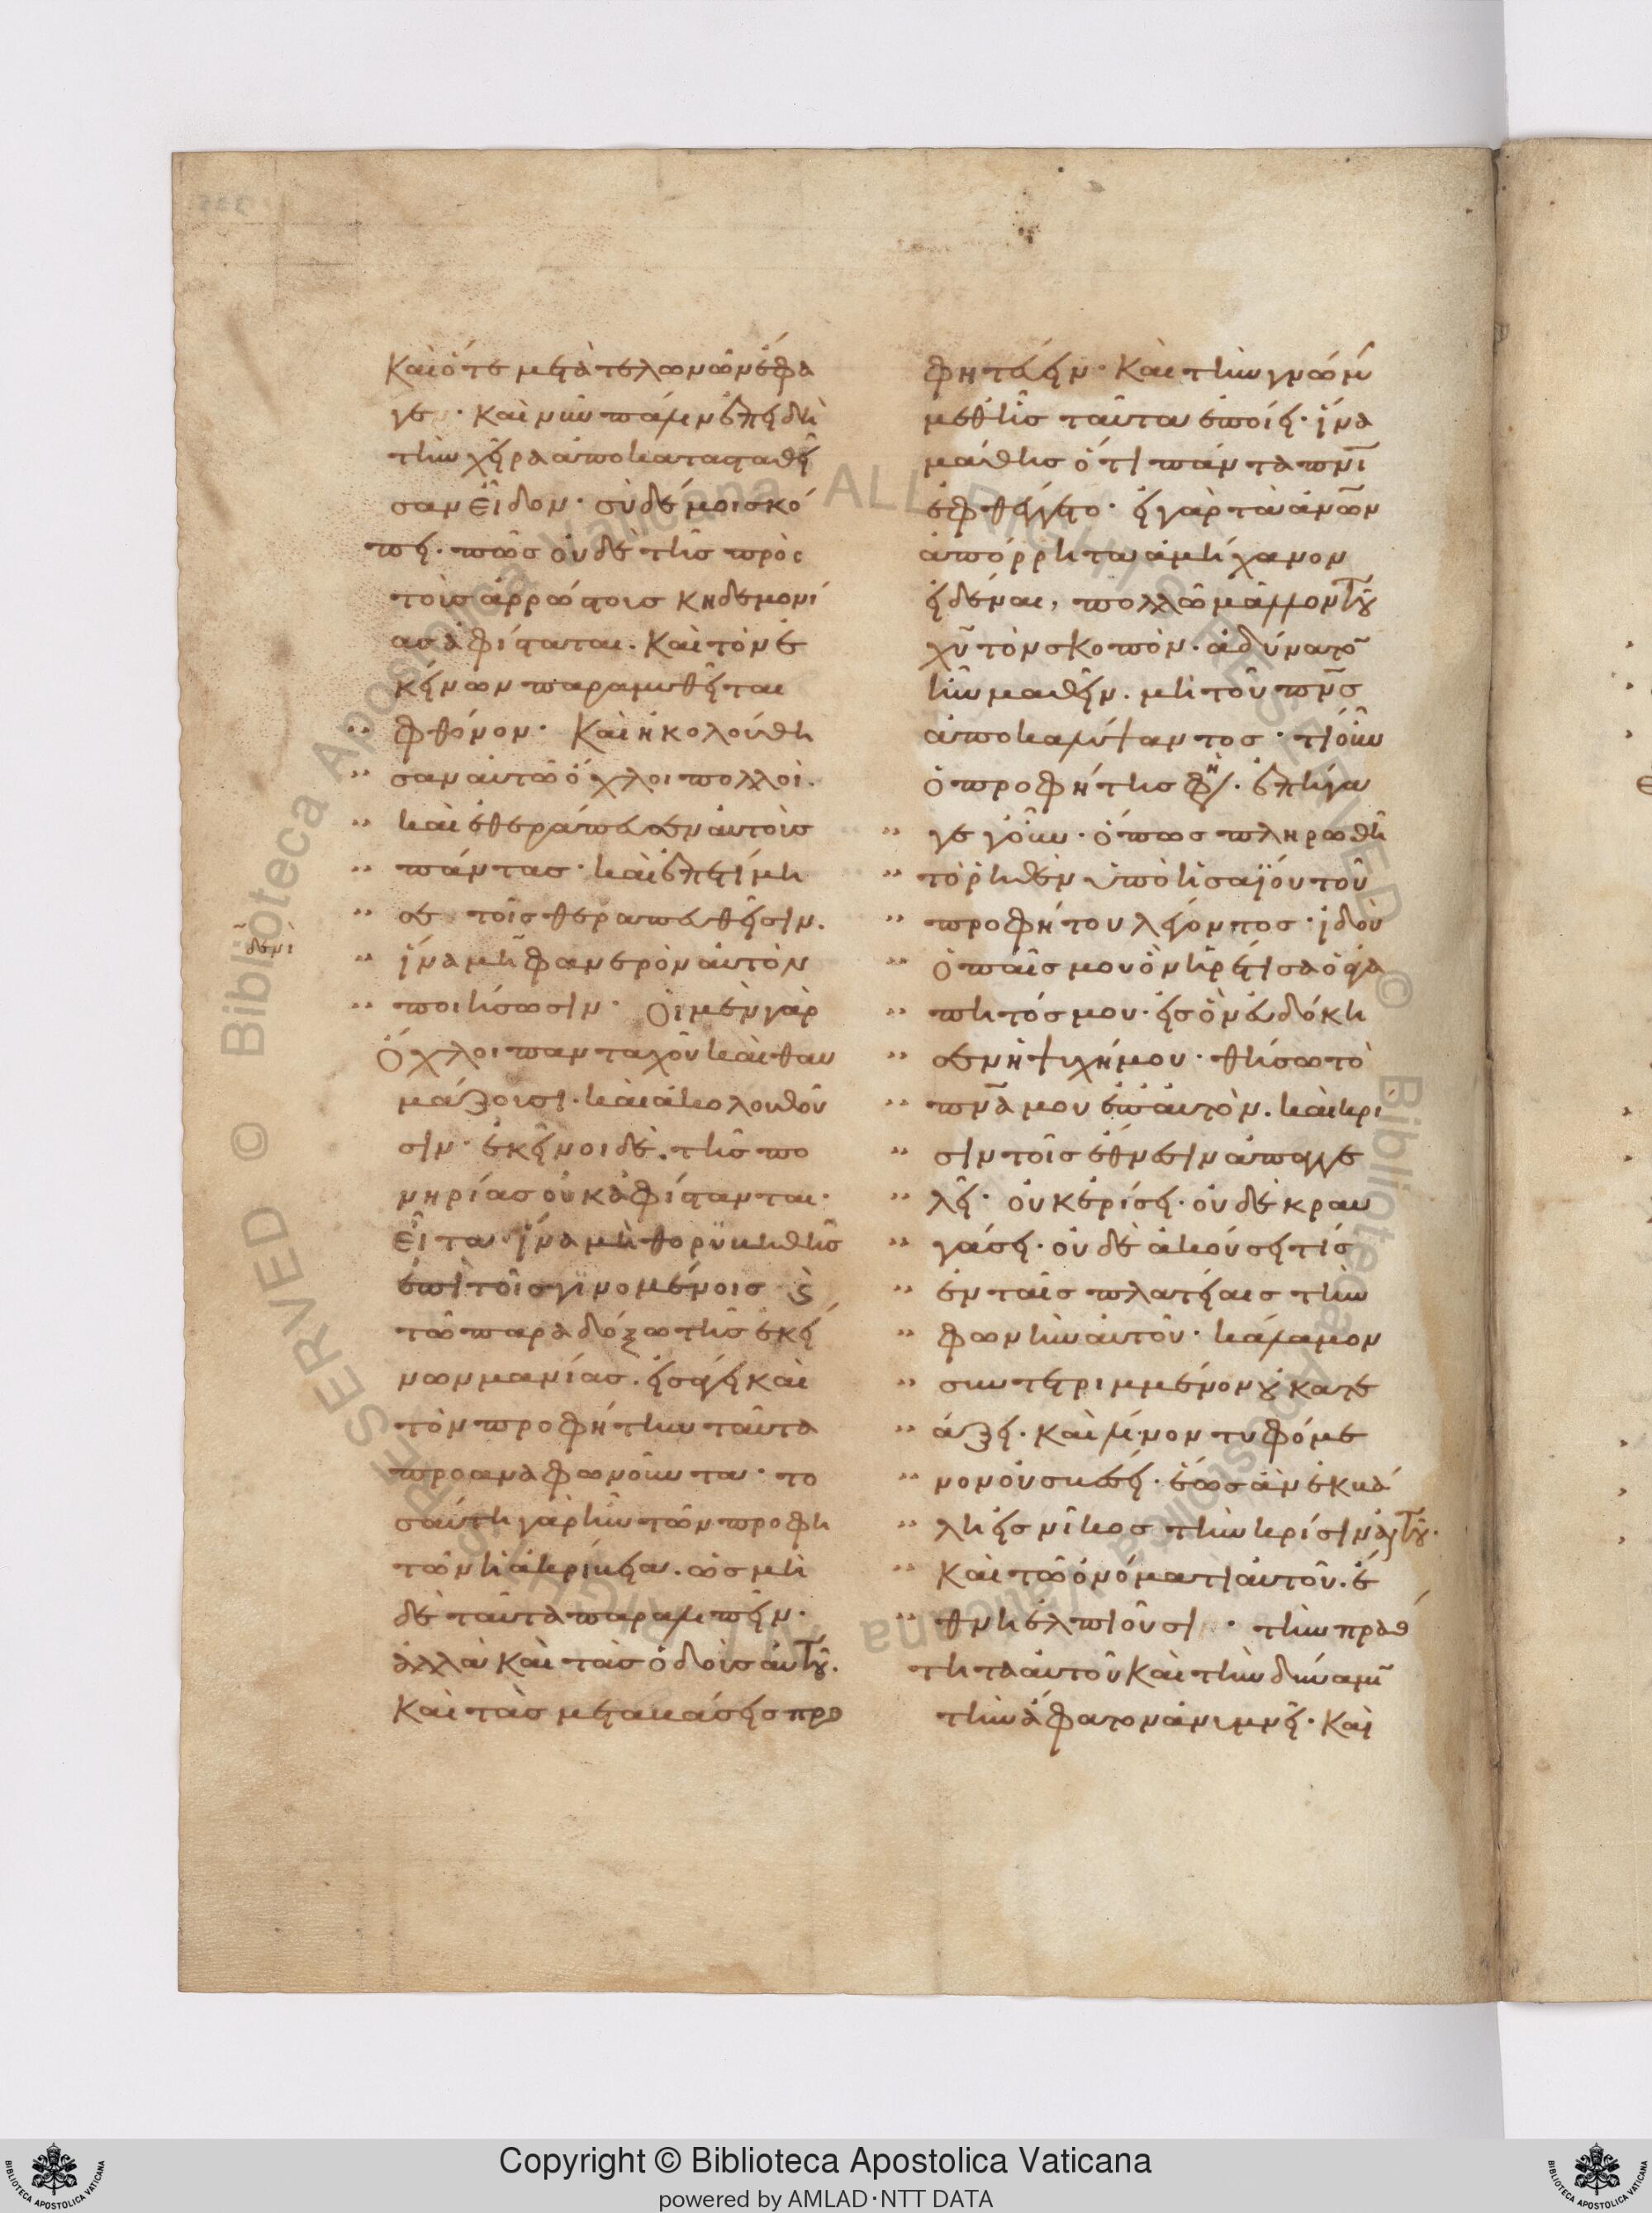 καὶ ὅτε μετὰ τελωνῶν ἔφα
γε · καὶ νῦν πάλιν ἐπειδὴ
τὴν χεῖρα ἀποκατασταθεῖ
σαν εἶδον · σὺ δέ μοι σκό
πει · πῶς οὐδὲ τῆς πρὸς
τοὺς ἀρρώστους κηδεμονί
ας ἀφίσταται · καὶ τὸν ἐ
κείνων παραμυθεῖται
φθόνον · Καὶ ἠκολούθη
σαν αὐτῶ ὄχλοι πολλοί ·
καὶ ἐθεράπευσεν αὐτοὺς
πάντας · καὶ ἐπετίμη
σε τοῖς θεραπευθεῖσιν ·
ἵνα μὴ φανερὸν αὐτὸν
ποιήσωσιν · Οἱ μὲν γὰρ
ὄχλοι πανταχοῦ καὶ θαυ
μάζουσι · καὶ ἀκολουθοῦ
σιν · ἐκεῖνοι δὲ · τῆς πο
νηρίας οὐκ ἀφίστανται ·
Εἶτα ἵνα μὴ θορυβηθῆς
ἐπὶ τοῖς γινομένοις ϛ
τῶ παραδόξω τῆς ἐκεί
νων μανίας · εἰσάγει καὶ
τὸν προφήτην ταῦτα
προαναφωνοῦντα · το
σαύτη γὰρ ἦν τῶν προφη
τῶν ἡ ἀκρίβεια · ὡς μὴ
δὲ ταῦτα παραλιπεῖν ·
ἀλλὰ καὶ τὰς ὁδοὺς αὐτοῦ ·
καὶ τὰς μεταβάσεις προ
φητεύειν · καὶ τὴν γνώμην
μεθ ἧς ταῦτα ἐποίει · ἵνα
μάθης ὅτι πάντα πνι
ἐφθέγγετο · εἰ γὰρ τὰ ἀνων
ἀπόρρητα ἀμήχανον
εἰδέναι, πολλῶ μᾶλλον τοῦ
χυ τὸν σκοπὸν · ἀδύνατον
ἦν μαθεῖν · μὴ τοῦ πνς
ἀποκαλύψαντος · τί οὖν
ὁ προφήτης φη · ἐπήγα
γε γοῦν · ὅπως πληρωθῆ
τὸ ῥηθὲν ὑπὸ ἡσαΐου τοῦ
προφήτου λέγοντος · ἰδοὺ
ὁ παῖς μου ὃν ἡρέτισα ὁ ἀγα
πητός μου · εἰς ὃν εὐδόκη
σεν ἡ ψυχή μου · θήσω τὸ
πνα μου ἐπ αὐτὸν · καὶ κρί
σιν τοῖς ἔθνεσιν ἀπαγγε
λεῖ · οὐκ ἐρίσει · οὐδὲ κραυ
γάσει · οὐδὲ ἀκούσει τίς
ἐν ταῖς πλατείαις τὴν
φωνὴν αὐτοῦ · κάλαμον
συντετριμμένον οὐ κατε
άξει · καὶ λίνον τυφόμε
νον οὐ σβέσει · ἕως ἂν ἐκβά
λη εἰς νῖκος τὴν κρίσιν αὐτοῦ ·
καὶ τῶ ὀνόματι αὐτοῦ · ἔ
θνη ἐλπιοῦσι · τὴν πραό
τητα αὐτοῦ καὶ τὴν δύναμιν
τὴν ἄφατον ἀνυμνεῖ · καὶ